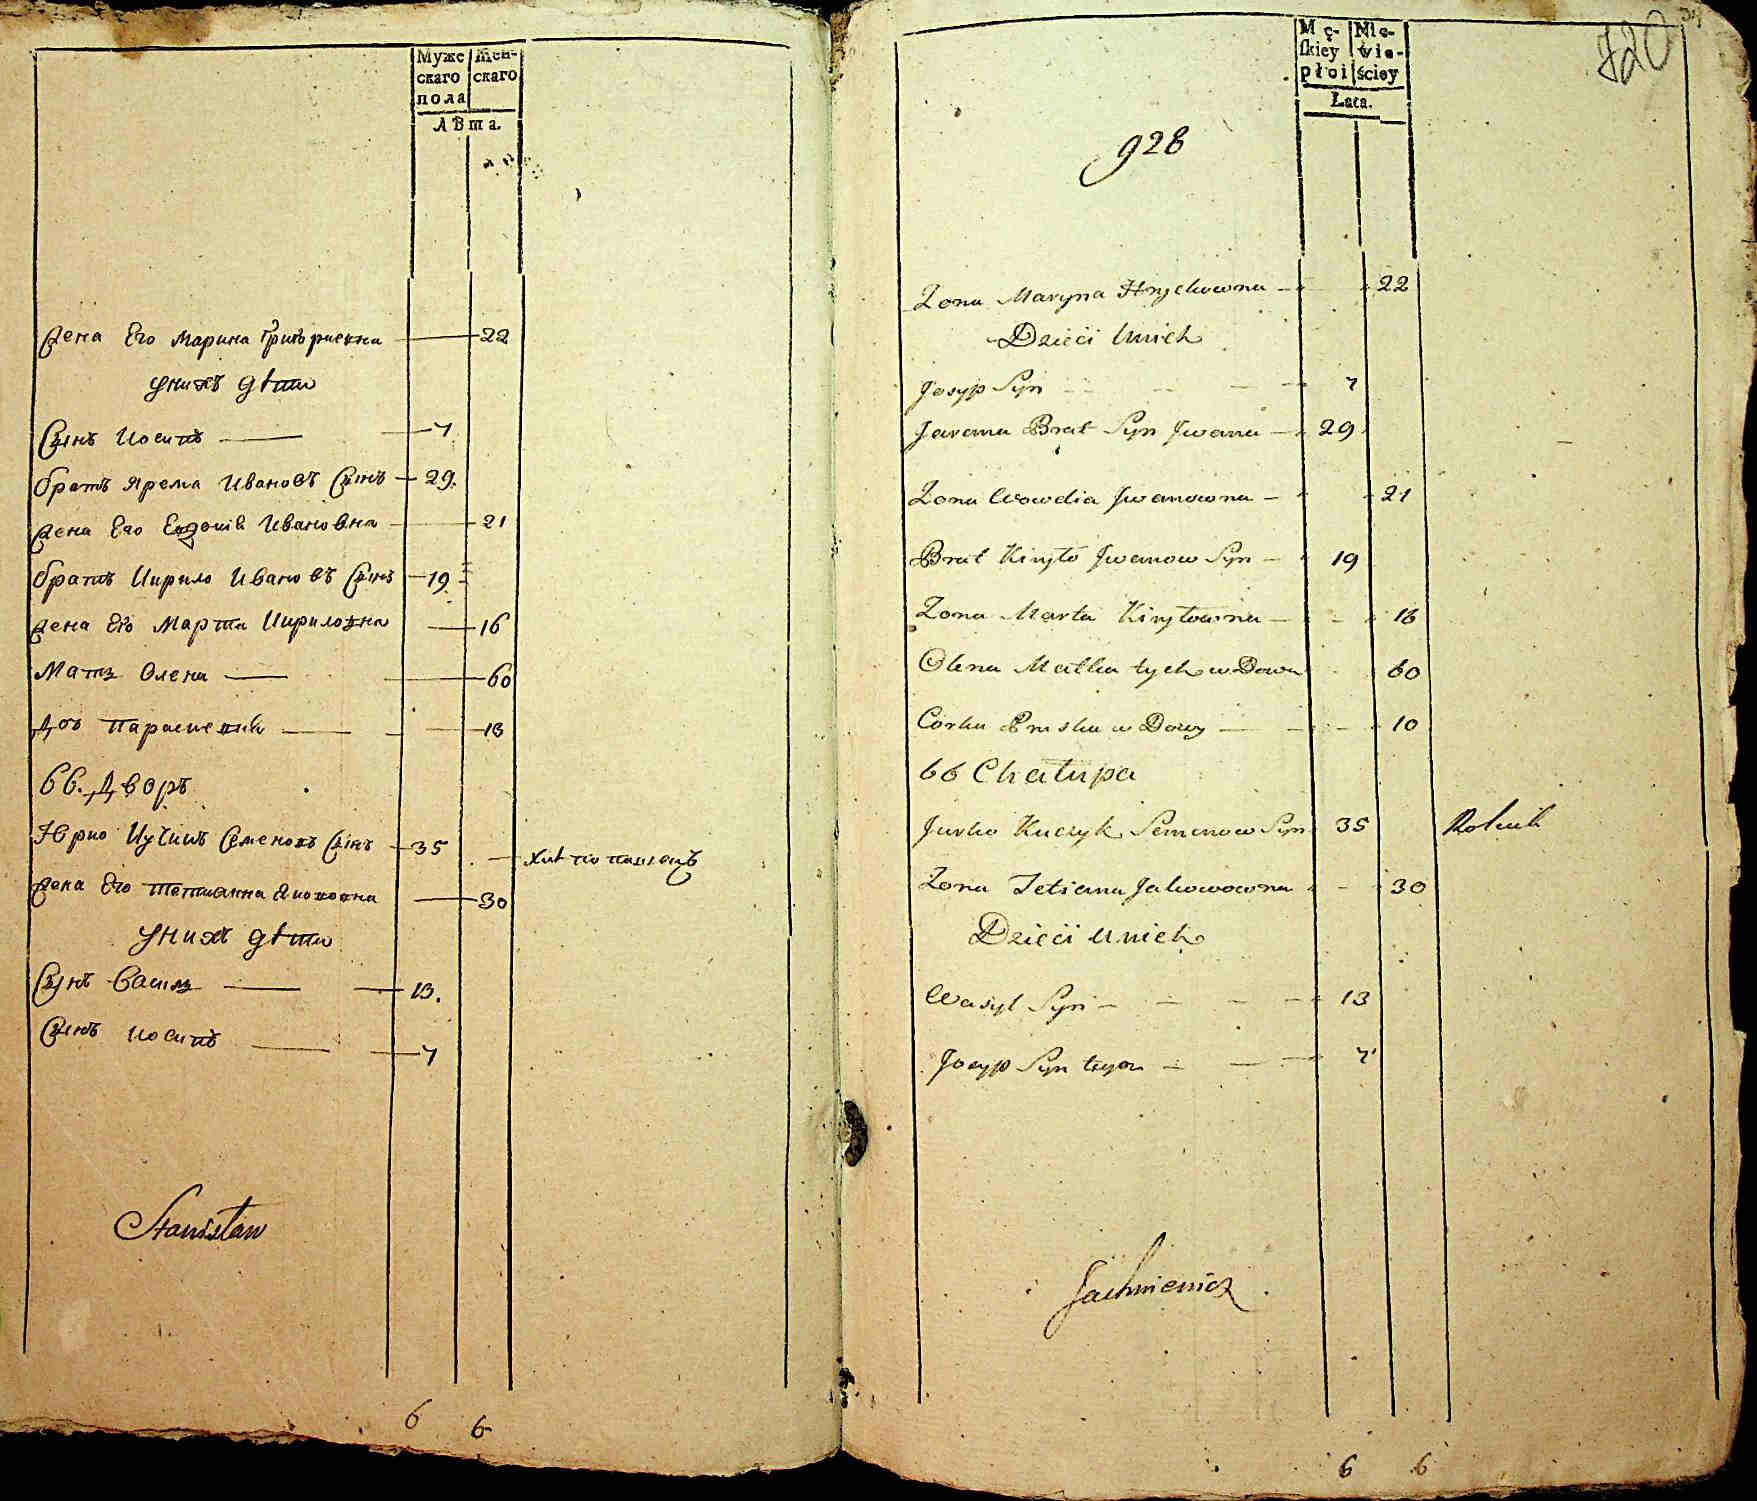 Муже
скаго
пола
Жен-
скаго
Лѣта.
Жена Его Марина Григориевна 22
Унихъ дѣти
Сынъ Иосипъ 7
братъ Ярема Ивановъ Сынъ 29.
Жена Его Евдокіѣ Ивановна 21
братъ Кирило Ивановъ Сынъ 19
Жена Его Марта Кириловна 16
Мать Олена 60
Дочь Параскевиѣ 13
66. Дворъ
Юрко Кучикъ Семеновъ Сынъ 35
Жена Его Татианна Якововна 30
Унихъ дѣти
Сынъ Василь 13.
Сынъ Иосипъ 7
Stanisław
6 6
120
Mę-
skiey
płci
Nie-
wie-
ściey
Lata.
928
Zona Maryna Hrychowna 22
Dzieci Unich
Josyp Syn 7
Jarema Brat Syn Jwana 29
Zona Wowdia Jwanowna 21
Brat Kiryło Jwanow Syn 19
Zona Marta Kiryłowna 16
Olena Matka tych wDowa 60
Corka wDowy 10
66 Chałupa
Jurko Kuczyk Semenow Syn 35 Rolnik
Zona Tetiana Jakowowna 30
Dzieci Unich
Wasyl Syn 13
Josyp Syn tegoz 7
Jachniewicz
6 6